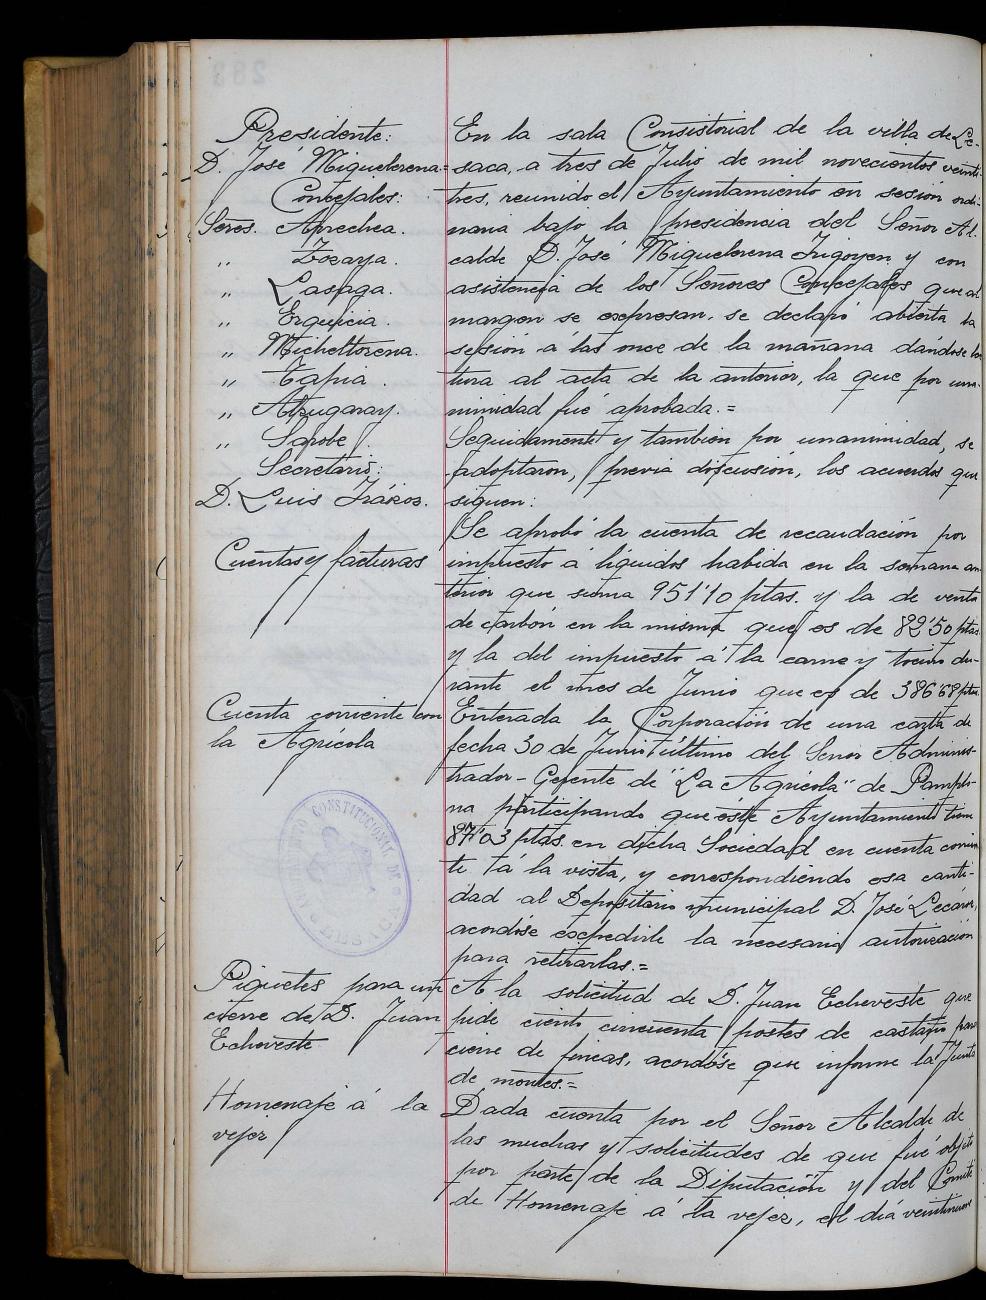 Presidente:
D. José Miguelerena=
Concejales:
Sères. Arrechea.
„ Zozaya.
„ Lasaga.
„ Erquicia.
„ Micheltorena.
„ Tapia.
„ Alzugaray.
„ Sarobe.
Secretario:
D. Luis Irázoz.
Cuentas y facturas
Cuenta corriente con
la Agrícola
AYUNTAMIENTO CONSTITUCIONAL DE LESACA
Piquetes para un
cierre de D. Juan
Echeveste
Homenaje á la
vejez
En la sala Consistorial de la villa de Le-
saca, a tres de Julio de mil novecientos veinti-
tres, reunido el Ayuntamiento en sesión ordi-
naria bajo la presidencia del Señor Al-
calde D. José Miguelerena Irigoyen y con
asistencia de los Señores Concejales que al
margen se expresan, se declaró abierta la
sesión á las once de la mañana dándose lec-
tura al acta de la anterior, la que por una-
nimidad fué aprobada.=
Seguidamente y también por unanimidad, se
adoptaron, previa discusión, los acuerdos que
siguen:
Se aprobó la cuenta de recaudación por
impuesto á líquidos habida en la semana an-
terior que suma 951'10 ptas. y la de venta
de carbón en la misma que es de 82'50 ptas.
y la del impuesto á la carne y tocino du-
rante el mes de Junio que es de 386'68 ptas.
Enterada la Corporación de una carta de
fecha 30 de Junio último del Señor Adminis-
trador-Gerente de "La Agrícola" de Pamplo-
na participando que éste Ayuntamiento tiene
87'03 ptas. en dicha Sociedad en cuenta corrien-
te á la vista, y correspondiendo esa canti-
dad al Depositario municipal D. José Lecároz,
acordóse expedirle la necesaria autorización
para retirarlas.=
A la solicitud de D. Juan Echeveste que
pide ciento cincuenta postes de castaño para
cierre de fincas, acordóse que informe la Junta
de montes.=
Dada cuenta por el Señor Alcalde de
las muchas y solicitudes de que fué objeto
por parte de la Diputación y del Comité
de Homenaje á la vejez, el día veintinueve